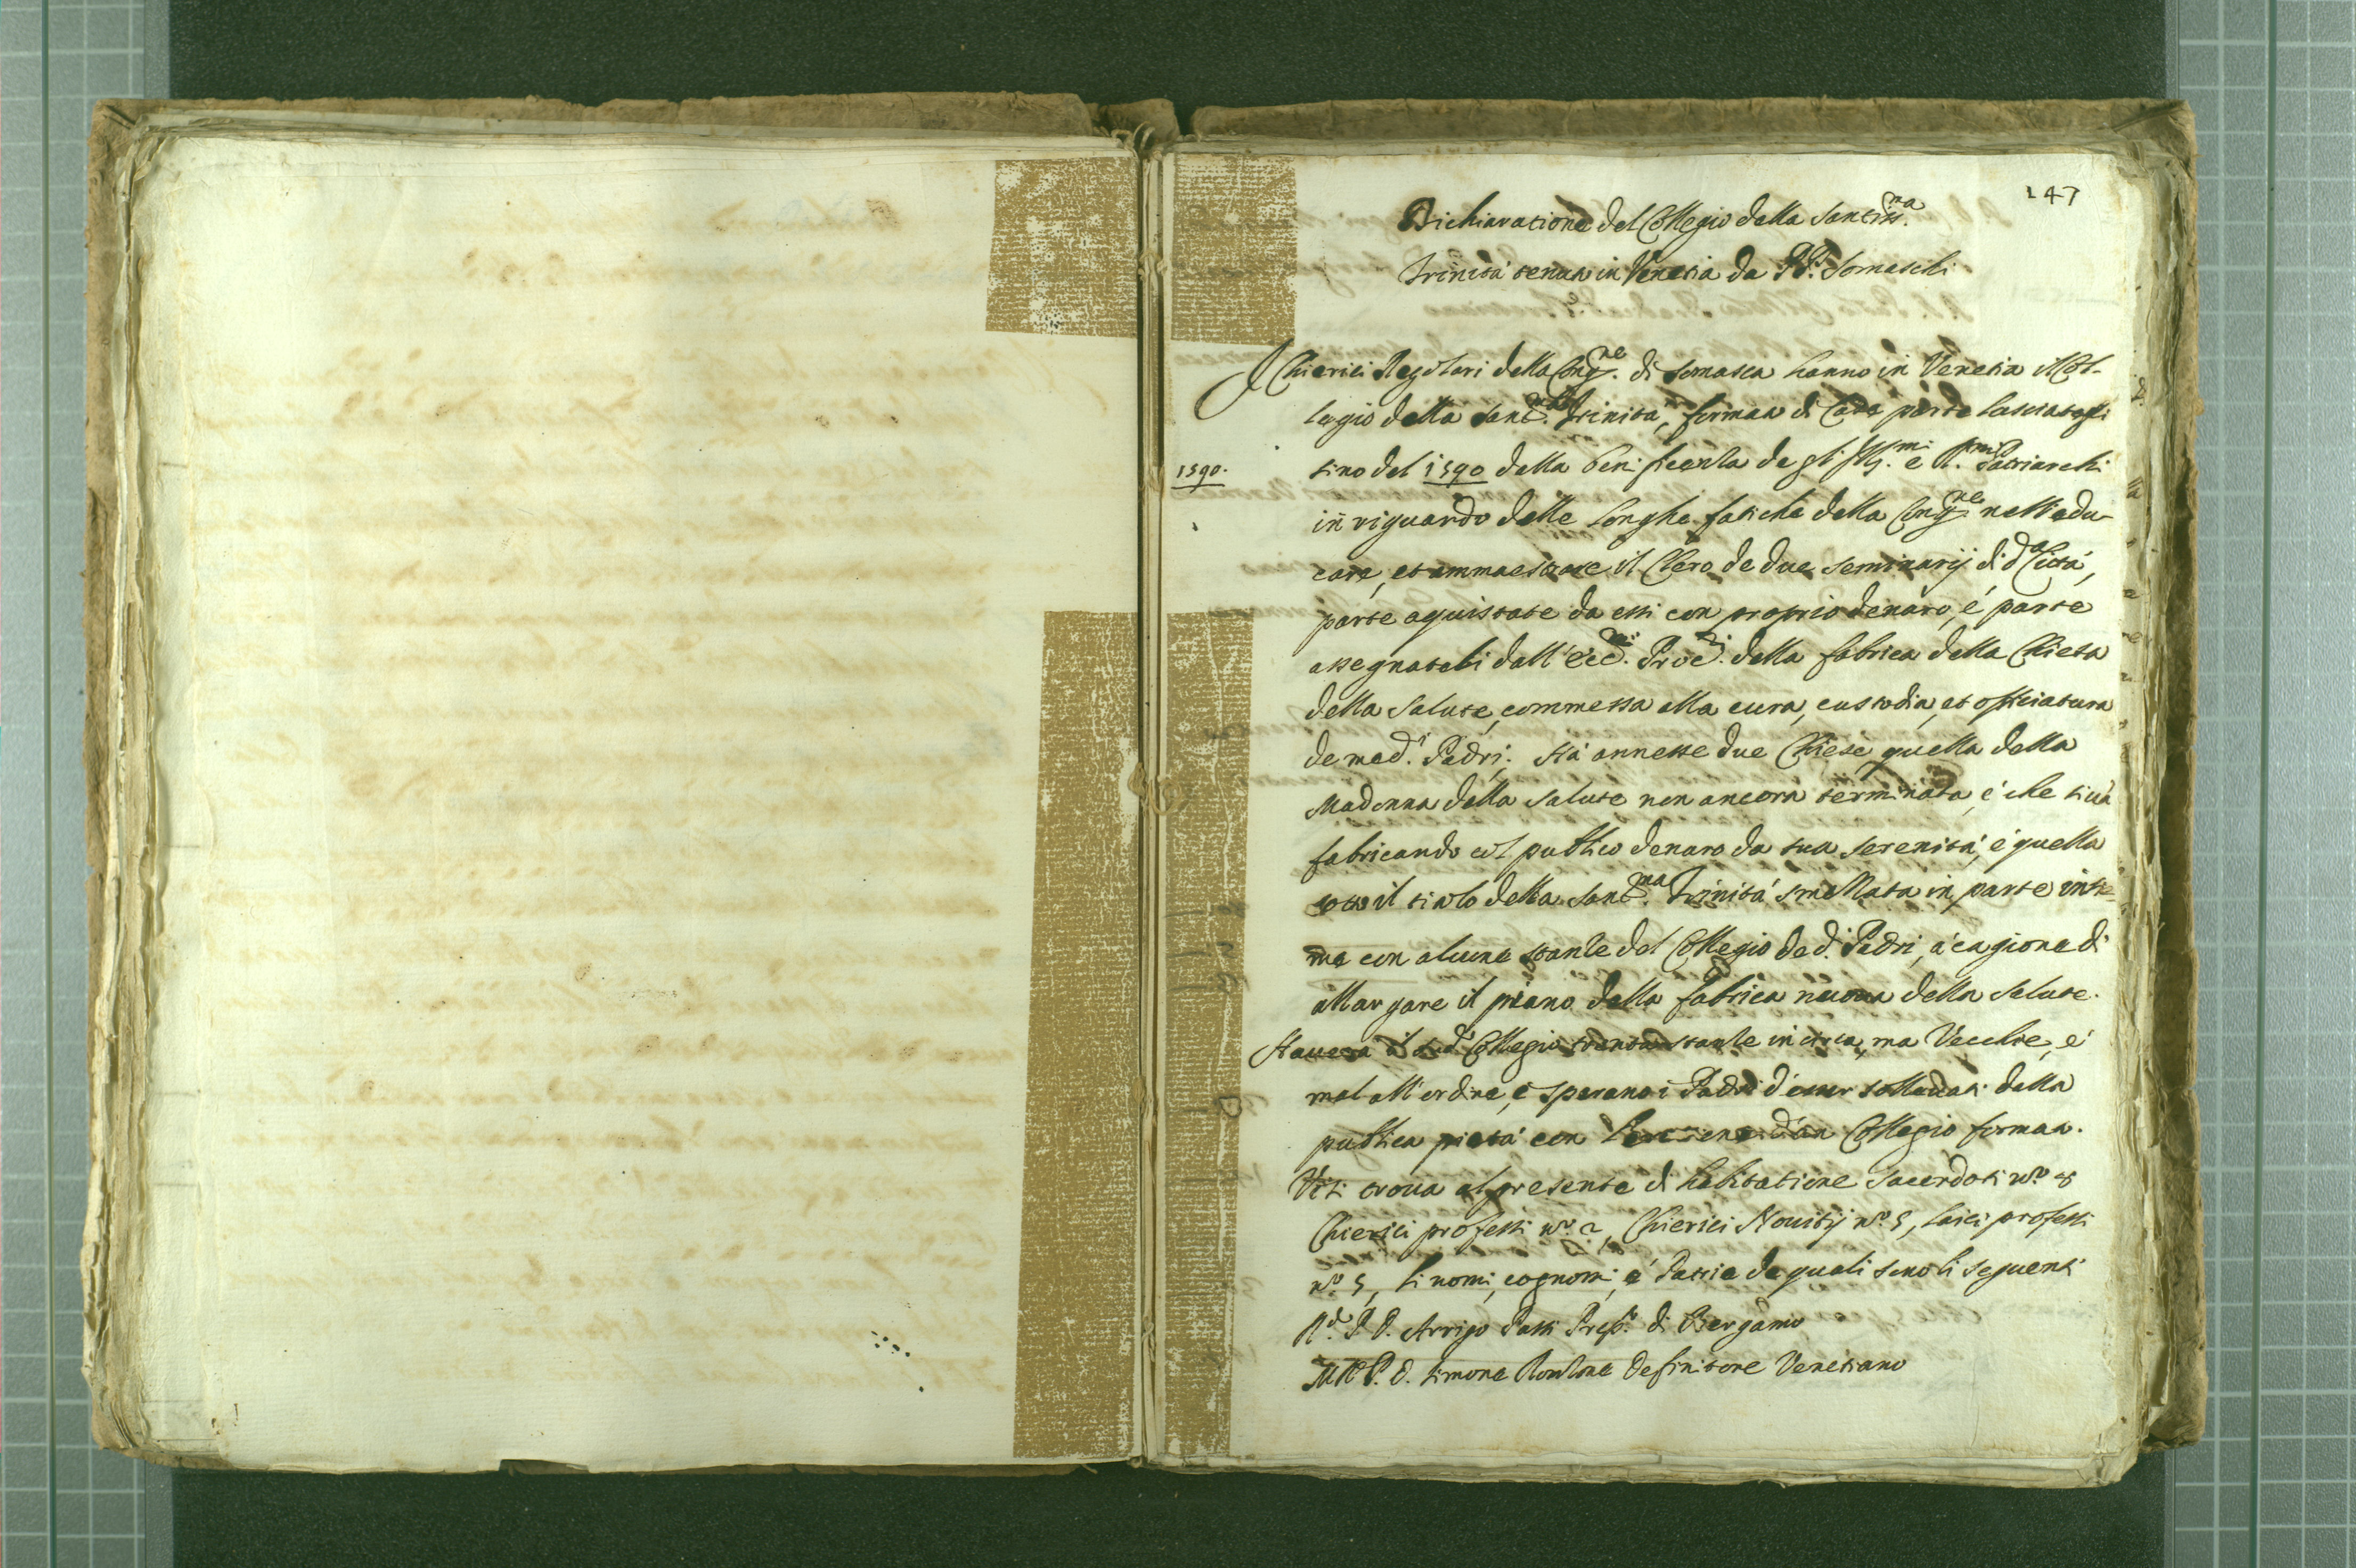 147
Dichiaratione del Collegio della Santiss.ma
Trinità tenuto in Venetia da PP. Somaschi
I Chierici Regolari della Cong.ne di Somasca hanno in Venetia il Col-
legio della Sant.ma Trinità, formato di Case parte lasciategli
1590.
sino del 1590 dalla beneficenza degl' Ill.mi e R.mi Patriarchi
in riguardo delle longhe fatiche della Cong.ne nell'edu-
care, et ammaestrare il Clero de due Seminarij di d.a Città,
parte aquistate da essi con proprio denaro, é parte
assegnateli dall' Ecc.mi Proc.ri della fabrica della Chiesa
della Salute, commessa alla cura, custodia, et officiatura
de med.i Padri; Hà annesse due Chiese quella della
Madonna della Salute non ancora terminata, é che si và
fabricando col publico denaro da sua Serenità, é quella
sotto il titolo della Sant.ma Trinità smellata in parte insie-
me con alcune stanze del Collegio de d.i Padri, à cagione di
allargare il piano della fabrica nuova della Salute.
Haverà il Collegio stanze in circa, ma Vecchie, é
mal all'ordine, é sperano i Padri d'esser sollevati dalla
publica pietà con d'un Collegio formato.
Vi si trova al presente di habitatione Sacerdoti n.o 8
Chierici professi n.o 2, Chierici Novitij n.o 5, laici professi
n.o 5, li nomi, cognomi, é Patrie de quali sono li seguenti
R.do P. D. Arrigo Patti Prep.o di Bergamo
M.R.P. D. Simone Definitore Venetiano